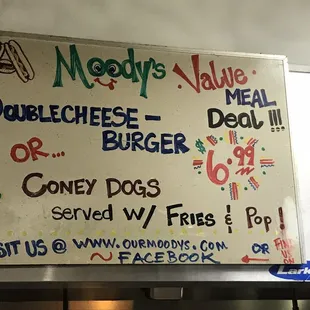 Moody's Value
MEAL
DOUBLECHEESE-
BURGER
DEAL !!!
OR...
$6.99
CONEY DOGS
served w/ FRIES & Pop!
VISIT US @ WWW.OURMOODYS.COM
~ FACEBOOK
OR